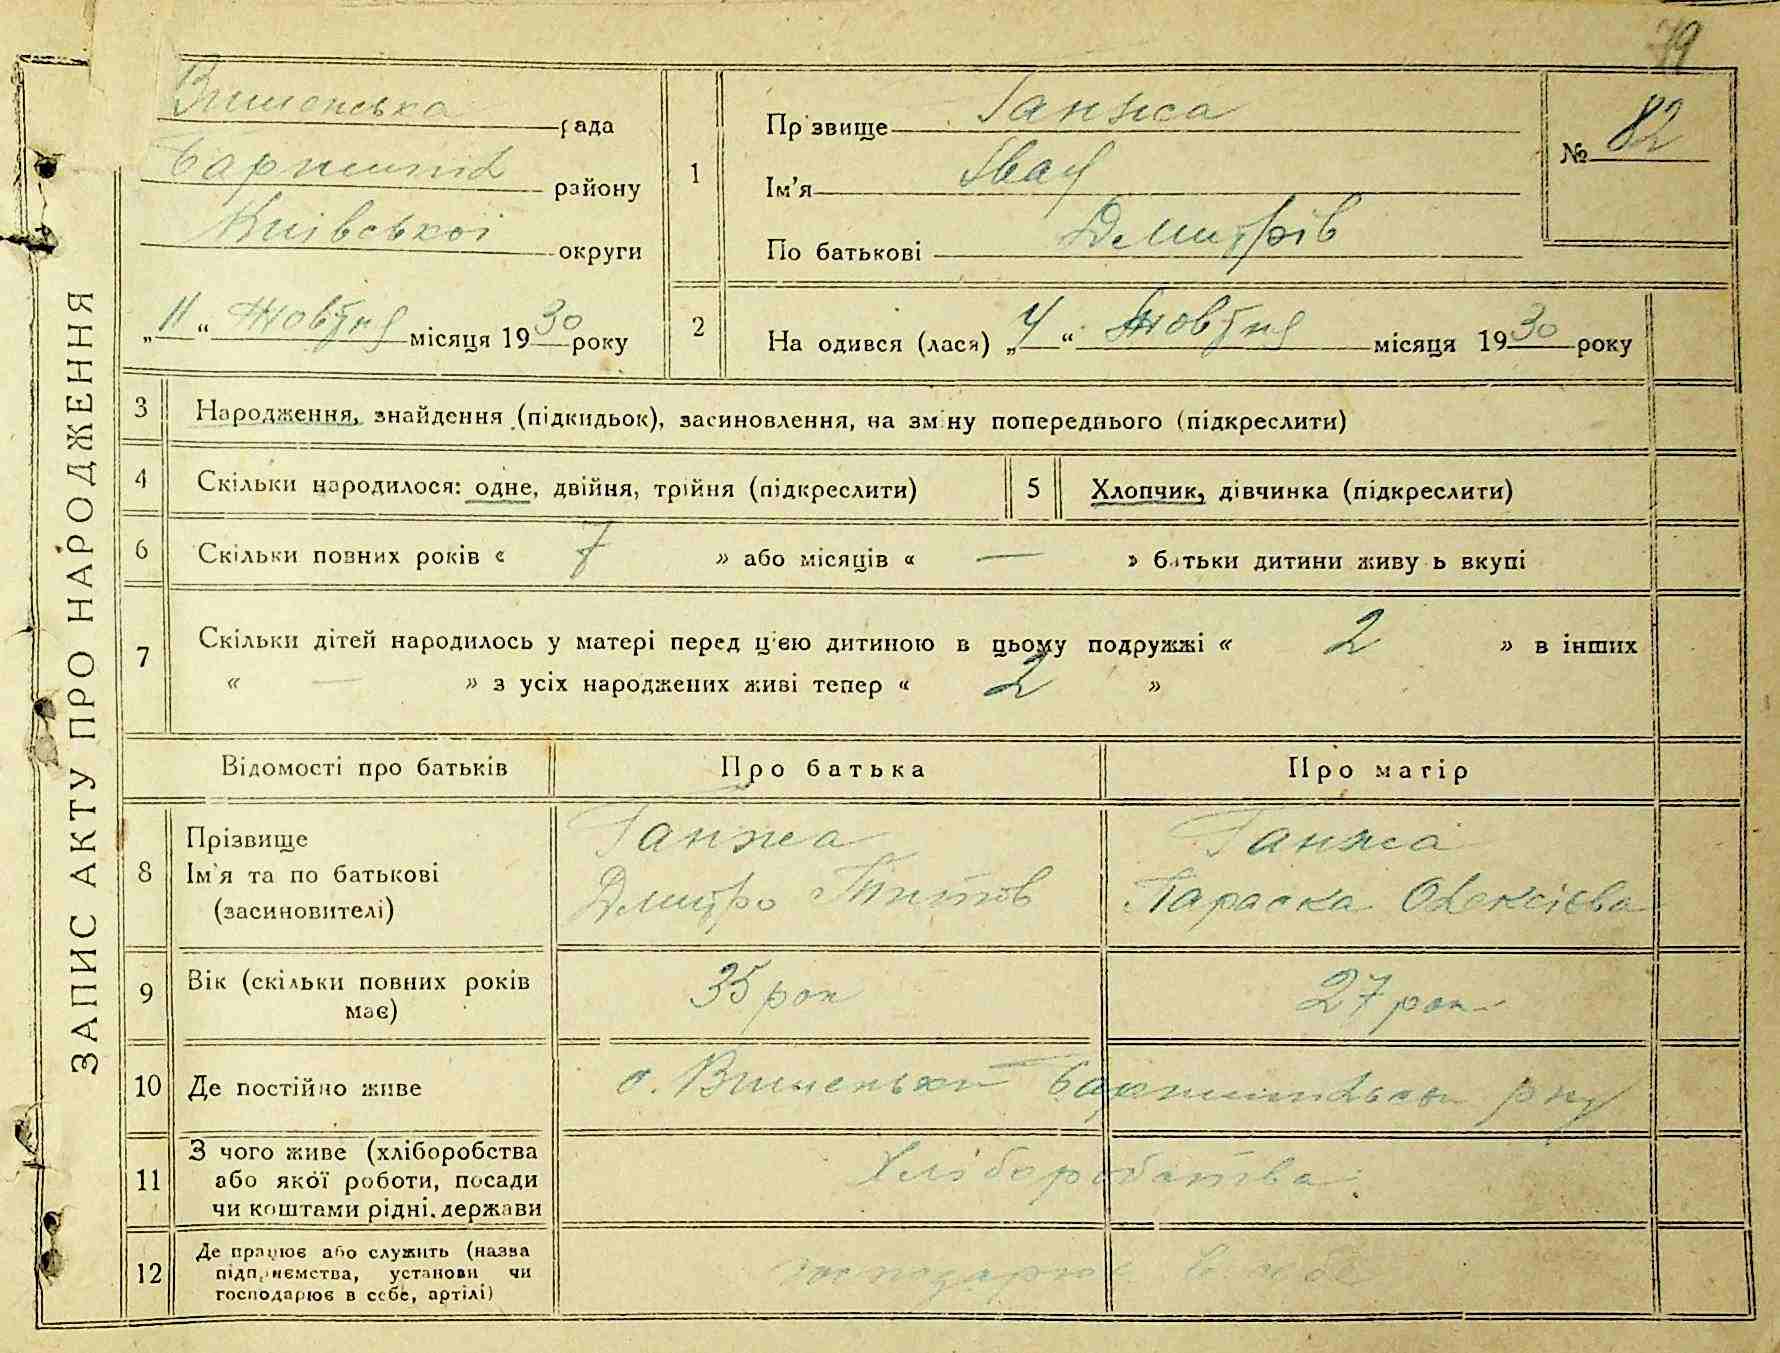 79
Вишенська рада
району
Київської округи
„11“ Жовтня місяця 1930 року
1
Прізвище Ганжа
Ім'я Іван
По батькові Дмитрів
№ 82
2
На одився (лася) „4“ Жовтня місяця 1930 року
ЗАПИС АКТУ ПРО НАРОДЖЕННЯ
3 Народження, знайдення (підкидьок), засиновлення, на зміну попереднього (підкреслити)
4 Скільки народилося: одне, двійня, трійня (підкреслити)
5 Хлопчик, дівчинка (підкреслити)
6 Скільки повних років « 7 » або місяців « — » батьки дитини живу ь вкупі
7 Скільки дітей народилось у матері перед цією дитиною в цьому подружжі « 2 » в інших
« — » з усіх народжених живі тепер « 2 »
Відомості про батьків Про батька Про матір
8 Прізвище
Ім'я та по батькові
(засиновителі)
Ганжа
Дмитро Титов
Ганжа
Параска Олексієва
9 Вік (скільки повних років
має)
35 рок
27 рок
10 Де постійно живе
с. Вишеньки р-ну
11 З чого живе (хліборобства
або якої роботи, посади
чи коштами рідні, держави
Хліборобства
12 Де працює або служить (назва
підприємства, установи чи
господарює в себе, артілі)
господарює в себе